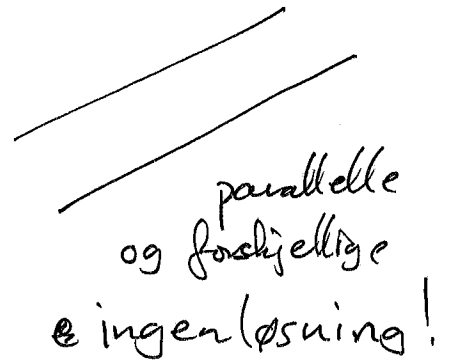 parallelle
og forskjellige
ingen løsning!